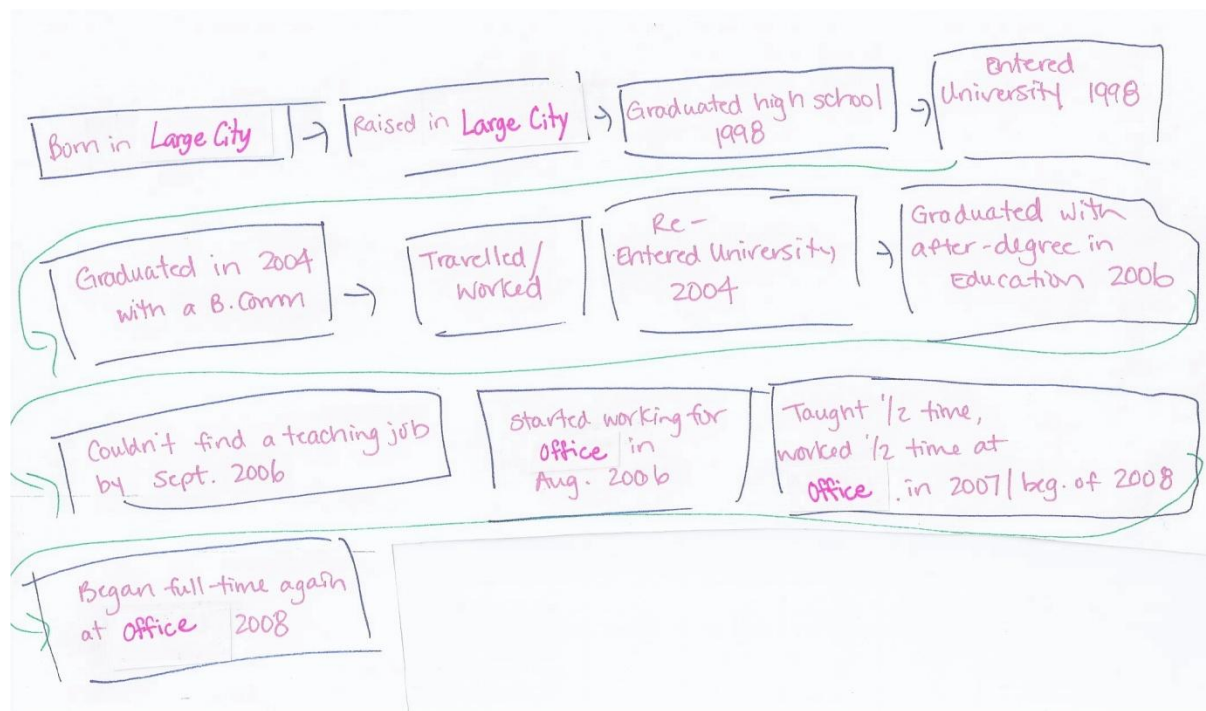 Born in Large City
Raised in Large City
Graduated high school
1998
Entered
University 1998
Graduated in 2004
with a B.Comm
Travelled/
worked
Re-
Entered University
2004
Graduated with
after-degree in
Education 2006
Couldn't find a teaching job
by Sept. 2006
Started working for
Office in
Aug. 2006
Taught 1/2 time,
worked 1/2 time at
Office . in 2007/beg. of 2008
Began full-time again
at Office 2008